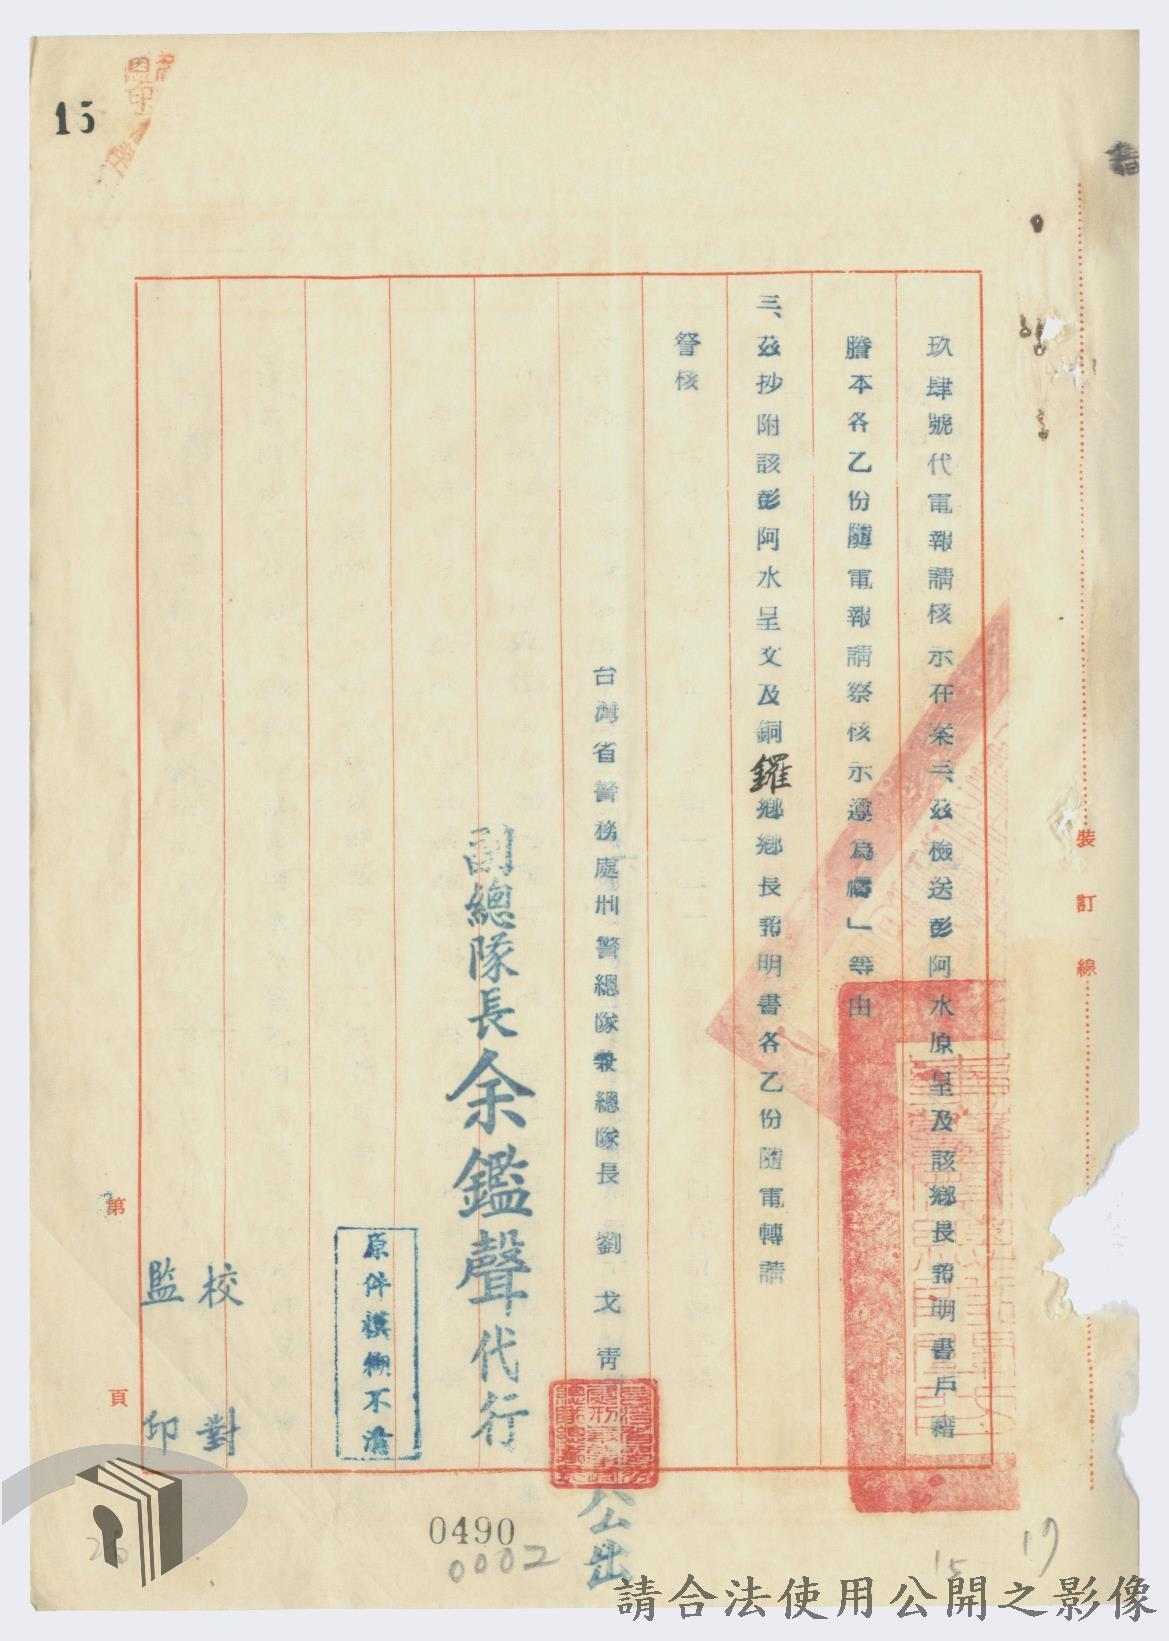 15
玖肆號代電報請核示在案三、茲檢送彭阿水原呈及該鄉長證明書戶籍
謄本各乙份隨電報請察核示遵為禱」等由
三、茲抄附該彭阿水呈文及銅鑼鄉鄉長證明書各乙份隨電轉請
督核
台灣省警務處刑警總隊兼總隊長 劉戈青
公出
副總隊長余鑑聲代行
原件模糊不清
校對
監印
第 頁
裝訂線
0490
0002
15
17
請合法使用公開之影像